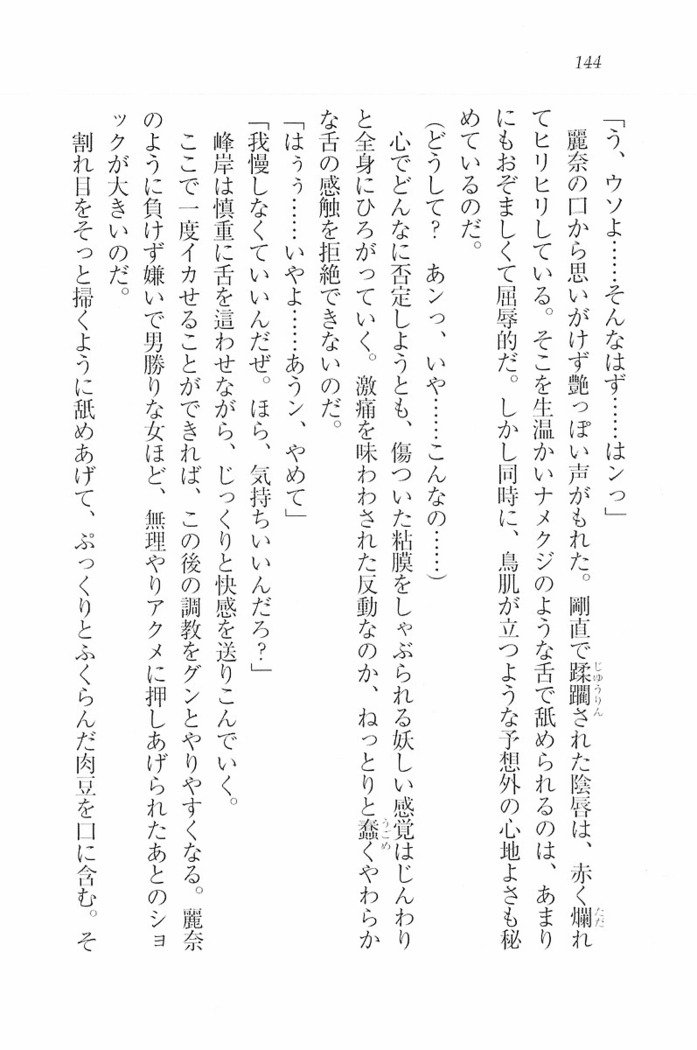 144
「う、ウソよ……そんなはず……はンっ」
麗奈の口から思いがけず艶っぽい声がもれた。剛直で蹂躙された陰唇は、赤く爛れ
じゅうりん
ただ
てヒリヒリしている。そこを生温かいナメクジのような舌で舐められるのは、あまり
にもおぞましくて屈辱的だ。しかし同時に、鳥肌が立つような予想外の心地よさも秘
めているのだ。
(どうして？　あンっ、いや……こんなの……)
心でどんなに否定しようとも、傷ついた粘膜をしゃぶられる妖しい感覚はじんわり
と全身にひろがっていく。激痛を味わわされた反動なのか、ねっとりと蠢くやわらか
うごめ
な舌の感触を拒絶できないのだ。
「はぅぅ……いやよ……あうン、やめて」
「我慢しなくていいんだぜ。ほら、気持ちいいんだろ？」
峰岸は慎重に舌を這わせながら、じっくりと快感を送りこんでいく。
ここで一度イカせることができれば、この後の調教をグンとやりやすくなる。麗奈
のように負けず嫌いで男勝りな女ほど、無理やりアクメに押しあげられたあとのショ
ックが大きいのだ。
割れ目をそっと掃くように舐めあげて、ぷっくりとふくらんだ肉豆を口に含む。そ